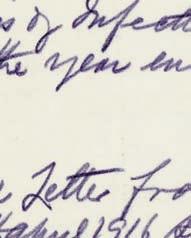 s of Infecti
the year en
Letter fro
April 1916